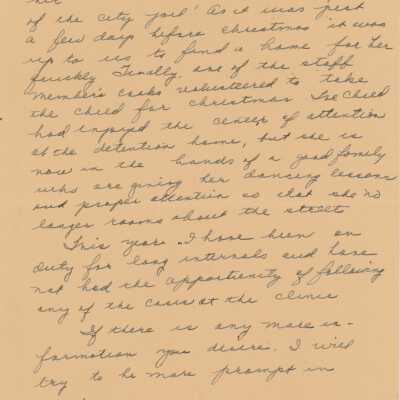 of the city jail! As it was just
a few days before Christmas it was
up to us to find a home for her
quickly. Finally, one of the staff
members cooks volunteered to take
the child for Christmas. The child
had enjoyed the center of attention
at the detention home, but she is
now in the hands of a good family
who are giving her dancing lessons
and proper attention so that she no
longer roams about the street
This year I have been on
duty for long intervals and have
not had the opportunity of following
any of the cases at the clinic
If there is any more in-
formation you desire. I will
try to be more prompt in